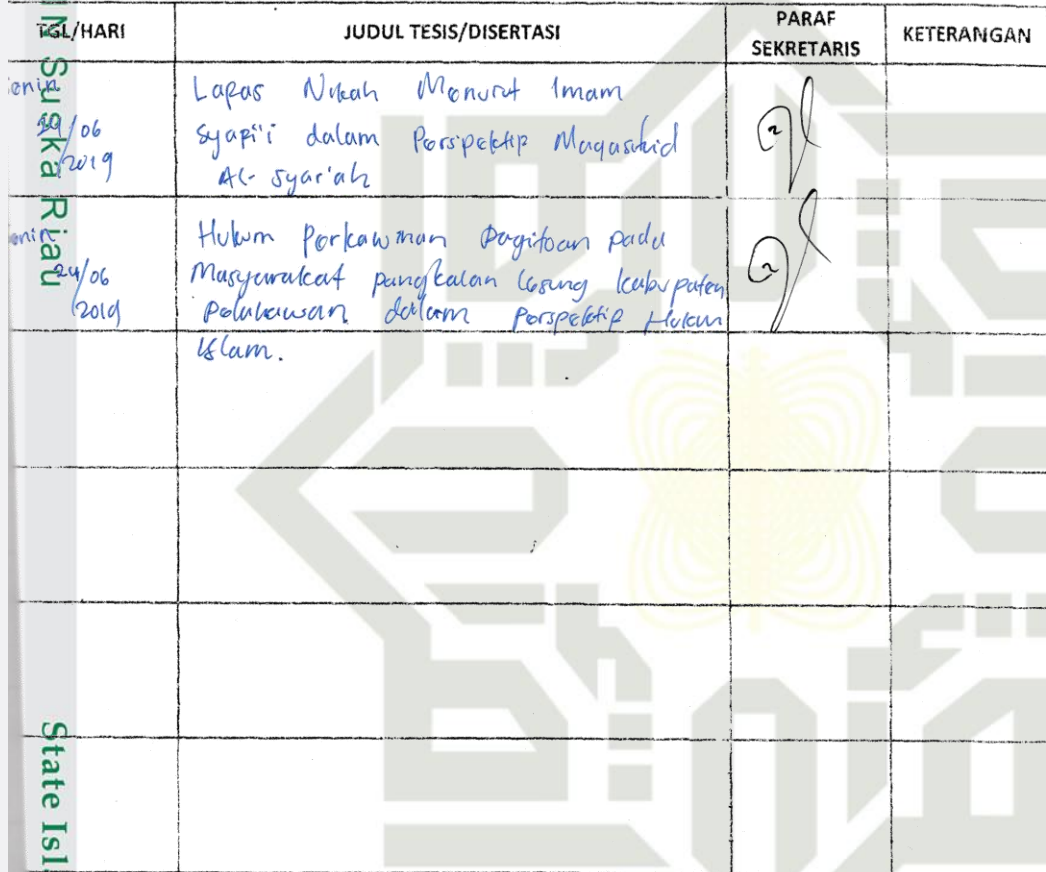 TGL/HARI JUDUL TESIS/DISERTASI PARAF SEKRETARIS KETERANGAN
enin Lapas Nikah Menurut Imam
24/06 Syapi'i dalam Perspektip Maqashid
2019 Al-Syar'ah
enin Hukum Perkawinan Pagitoan pada
24/06 Masyarakat pangkalan Lesung kabupaten
2019 Pelalawan dalam Perspektip Hukum
Islam.
N Suska Riau
State Isl